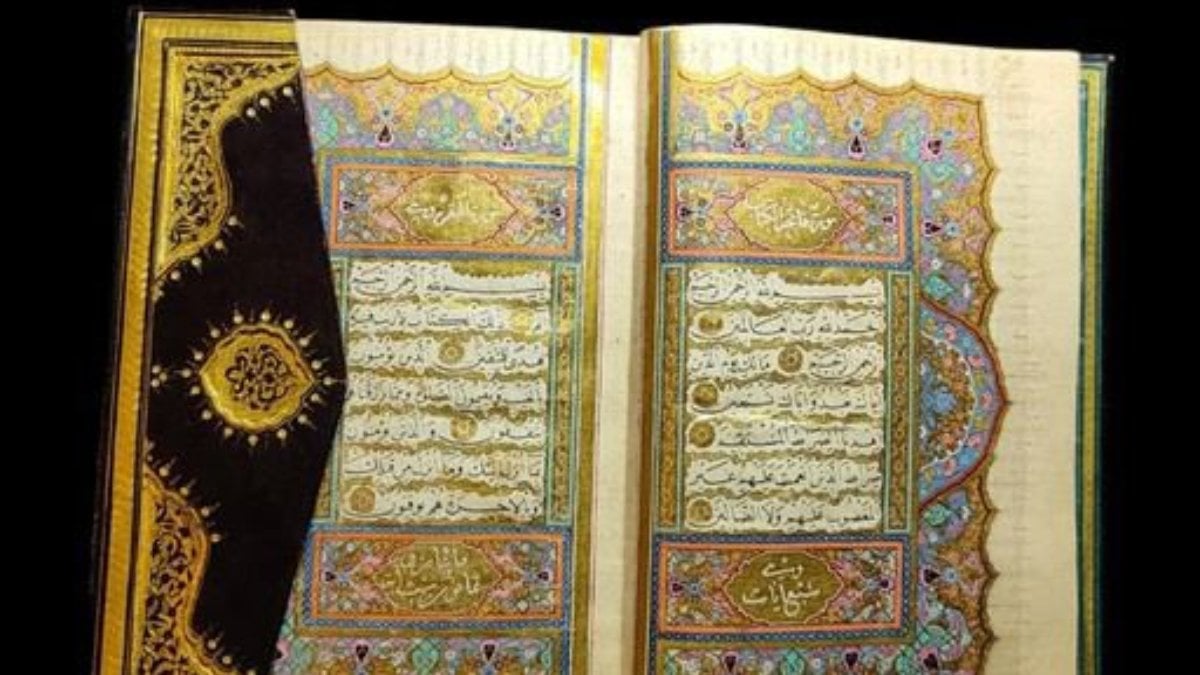 سورة فاتحة الكتاب
بسم الله الرحمن الرحيم
الحمد لله رب العالمين
الرحمن الرحيم مالك يوم الدين
اياك نعبد واياك نستعين
اهدنا الصراط المستقيم
صراط الذين انعمت عليهم غير
المغضوب عليهم ولا الضالين
وهي
سبع ايات
سورة البقرة
بسم الله الرحمن الرحيم
الم ذلك الكتاب لا ريب فيه
هدى للمتقين الذين يؤمنون
بالغيب ويقيمون الصلوة ومما رزقناهم
ينفقون والذين يؤمنون
بما انزل اليك وما انزل من قبلك
وبالاخرة هم يوقنون